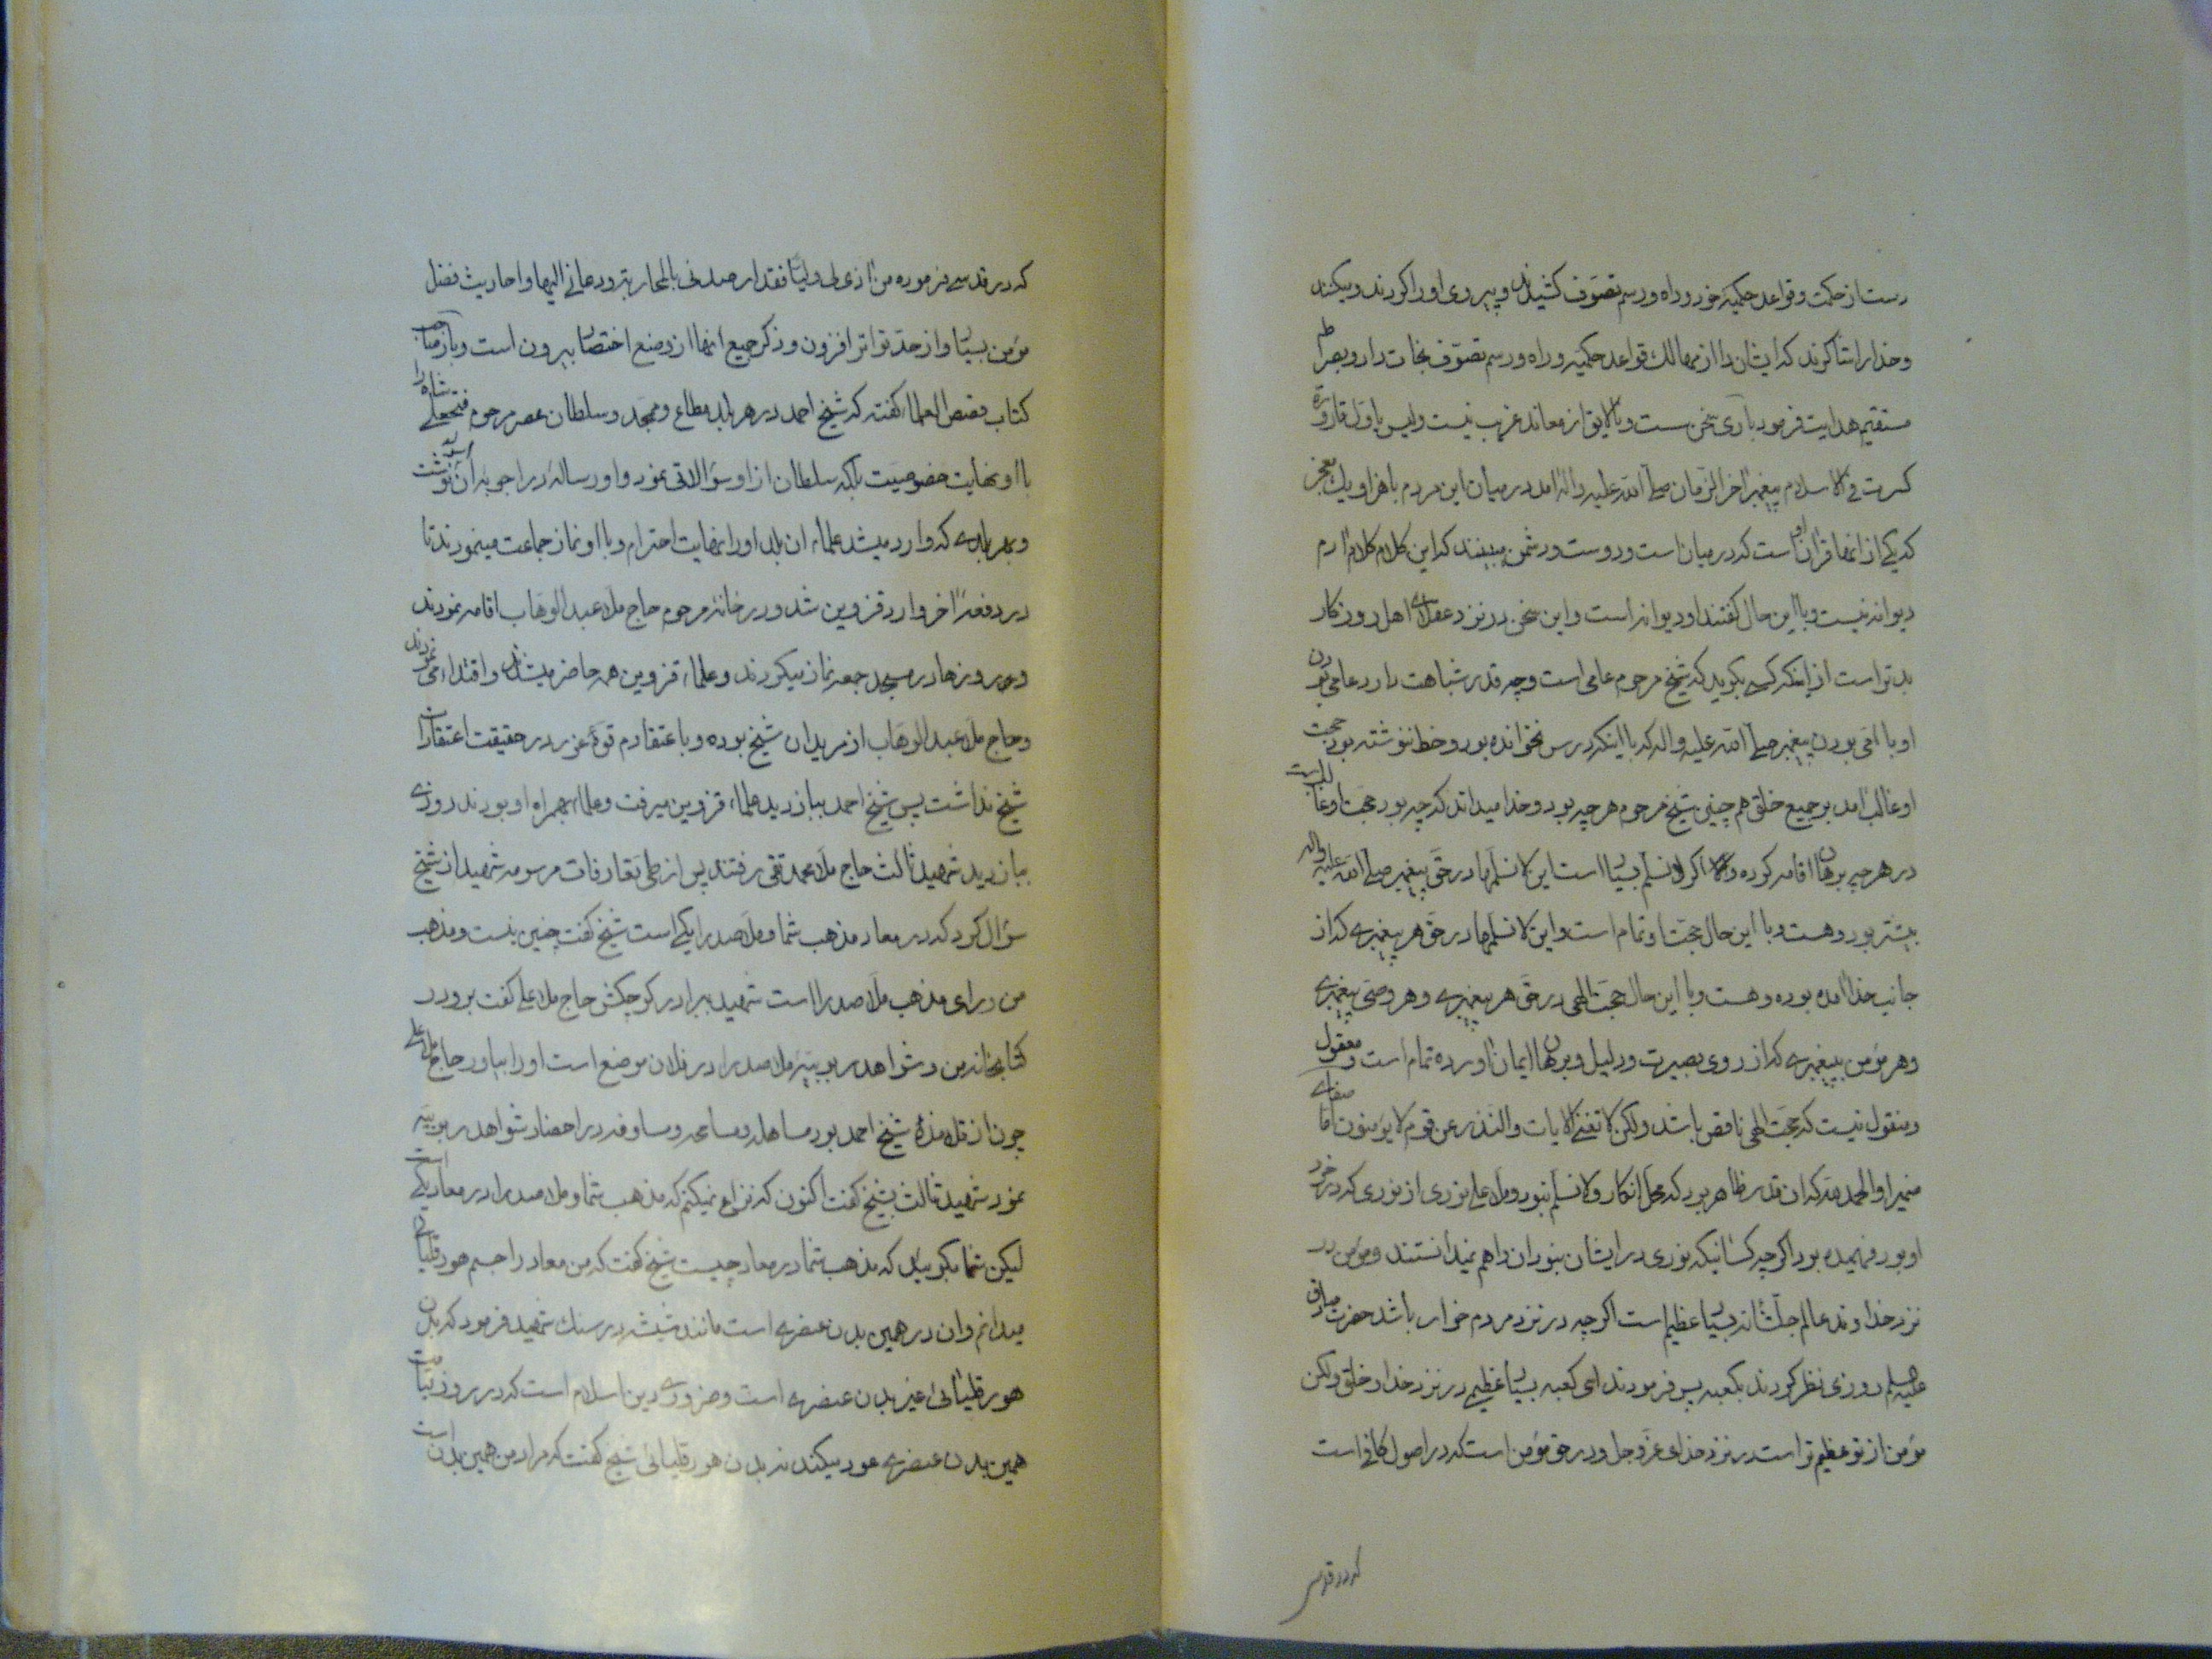 دست از حکمت و قواعد حکمیهٔ خود و راه و رسم تصوّف کشیدند و پیروی او را کردند و میکنند
و خدا را ثنا کردند که ایشان را از مهالك قواعد حکمیه و راه و رسم تصوّف نجات داد و بصراط
مستقیم هدایت فرمود باری سخن سست و نالایق از معاند غریب نیست و لیس باول قارورة
کسرت فی الاسلام پیغمبر اخر الزمان صلی الله علیه و اله امد در میان این مردم با هزار و یك معجز
که یکی از انها قران او است که در میان است و دوست و دشمن میبینند که این کلام کلام ادم
دیوانه نیست و با این حال گفتند او دیوانه است و این سخن در نزد عقلای اهل روزکار
بدتر است از اینکه کسی بکوید که شیخ مرحوم عامی است و چه قدر شباهت دارد عامی بودن
او با امّی بودن پیغمبر صلی الله علیه و اله که با اینکه درس نخوانده بود و خط ننوشته بود حجت
او غالب امد بر جمیع خلق هم چنین شیخ مرحوم هر چه بود و خدا میداند که چه بود حجت او غالبست
در هر چه برهان اقامه کرده و اگر لا نسلّم بسیار است این لا نسلّمها در حق پیغمبر صلی الله علیه واله
بیشتر بود و هست و با این حال حجت او تمام است و این لا نسلّمها در حق هر پیغمبری که از
جانب خدا امده بوده و هست و با این حال حجت الهی در حق هر پیغمبری و هر وصی پیغمبری
و هر مؤمن بپیغمبری که از روی بصیرت و دلیل و برهان ایمان اورده تمام است و معقول
و منقول نیست که حجت الهی ناقص باشد ولکن لا تغنی الایات والنذر عن قوم لا یؤمنون اما صفای
ضمیر او الحمد لله که ان قدر ظاهر بود که محل انکار و لا نسلّم نبود و ملا علی نوری از نوری که در خود
او بود فهمیده بود اکر چه کسانیکه نوری در ایشان نبود ان را هم نمیدانستند و مؤمن در
نزد خداوند عالم جلّ شانه بسیار عظیم است اکر چه در نزد مردم خوار باشد حضرت صادق
علیه السلم روزی نظر کردند بکعبه پس فرمودند ای کعبه بسیار عظیمی در نزد خدا و خلق ولکن
مؤمن از تو عظیم تر است در نزد خدای عز و جل و در حق مؤمن است که در اصول کافی است
که در قدسی
که در قدسی فرموده من اذی لی ولیّا فقد ارصدنی بالمحاربة و دعانی الیها و احادیث فضل
مؤمن بسیار و از حد تواتر افزون و ذکر جمیع انها از وضع اختصار بیرون است و باز صاحب
کتاب قصص العلماء گفته که شیخ احمد در هر بلد مطاع و ممجد و سلطان عصر مرحوم فتحعلی شاه را
با او نهایت خصوصیت بلکه سلطان از او سؤالاتی نمود و او رسالهٔ در اجوبه آن اسئله نوشت
و بهر بلدی که وارد میشد علماء ان بلد او را نهایت احترام و با او نماز جماعت مینمودند تا
در دفعهٔ اخر وارد قزوین شد و در خانهٔ مرحوم حاج ملا عبد الوهاب اقامه نمودند
و روزها در مسجد جمعه نماز میکردند و علماء قزوین همه حاضر میشدند و اقتدا می نمودند
و حاج ملا عبد الوهاب از مریدان شیخ بوده و باعتقادم قوّهٔ غور در حقیقت اعتقادات
شیخ نداشت پس شیخ احمد ببازدید علماء قزوین میرفت و علماء بهمراه او بودند روزی
ببازدید شهید ثالث حاج ملا محمد تقی رفتند پس از طی تعارفات مرسومه شهید از شیخ
سؤال کرد که در معاد مذهب شما و ملا صدرا یکی است شیخ گفت چنین نیست و مذهب
من ورای مذهب ملا صدرا است شهید ببرادر کوچکش حاج ملا علی گفت برو در
کتابخانه من و شواهد ربوبیّهٔ ملا صدرا در فلان موضع است او را بیاور حاج ملا علی
چون از تلامذهٔ شیخ احمد بود مساهله و مسامحه و مساوفه در احضار شواهد ربوبیّه
نمود شهید ثالث بشیخ گفت اکنون که نزاع نمیکنم که مذهب شما و ملا صدرا در معاد یکی است
لیکن شما بکویید که مذهب شما در معاد چیست شیخ گفت که من معاد را جسم هورقلیائی
میدانم و ان در همین بدن عنصری است مانند شیشه در سنك شهید فرمود که بدن
هورقلیائی غیر بدن عنصری است و ضروری دین اسلام است که در روز قیامت
همین بدن عنصری عود میکند نه بدن هورقلیائی شیخ گفت که مراد من همین بدن است